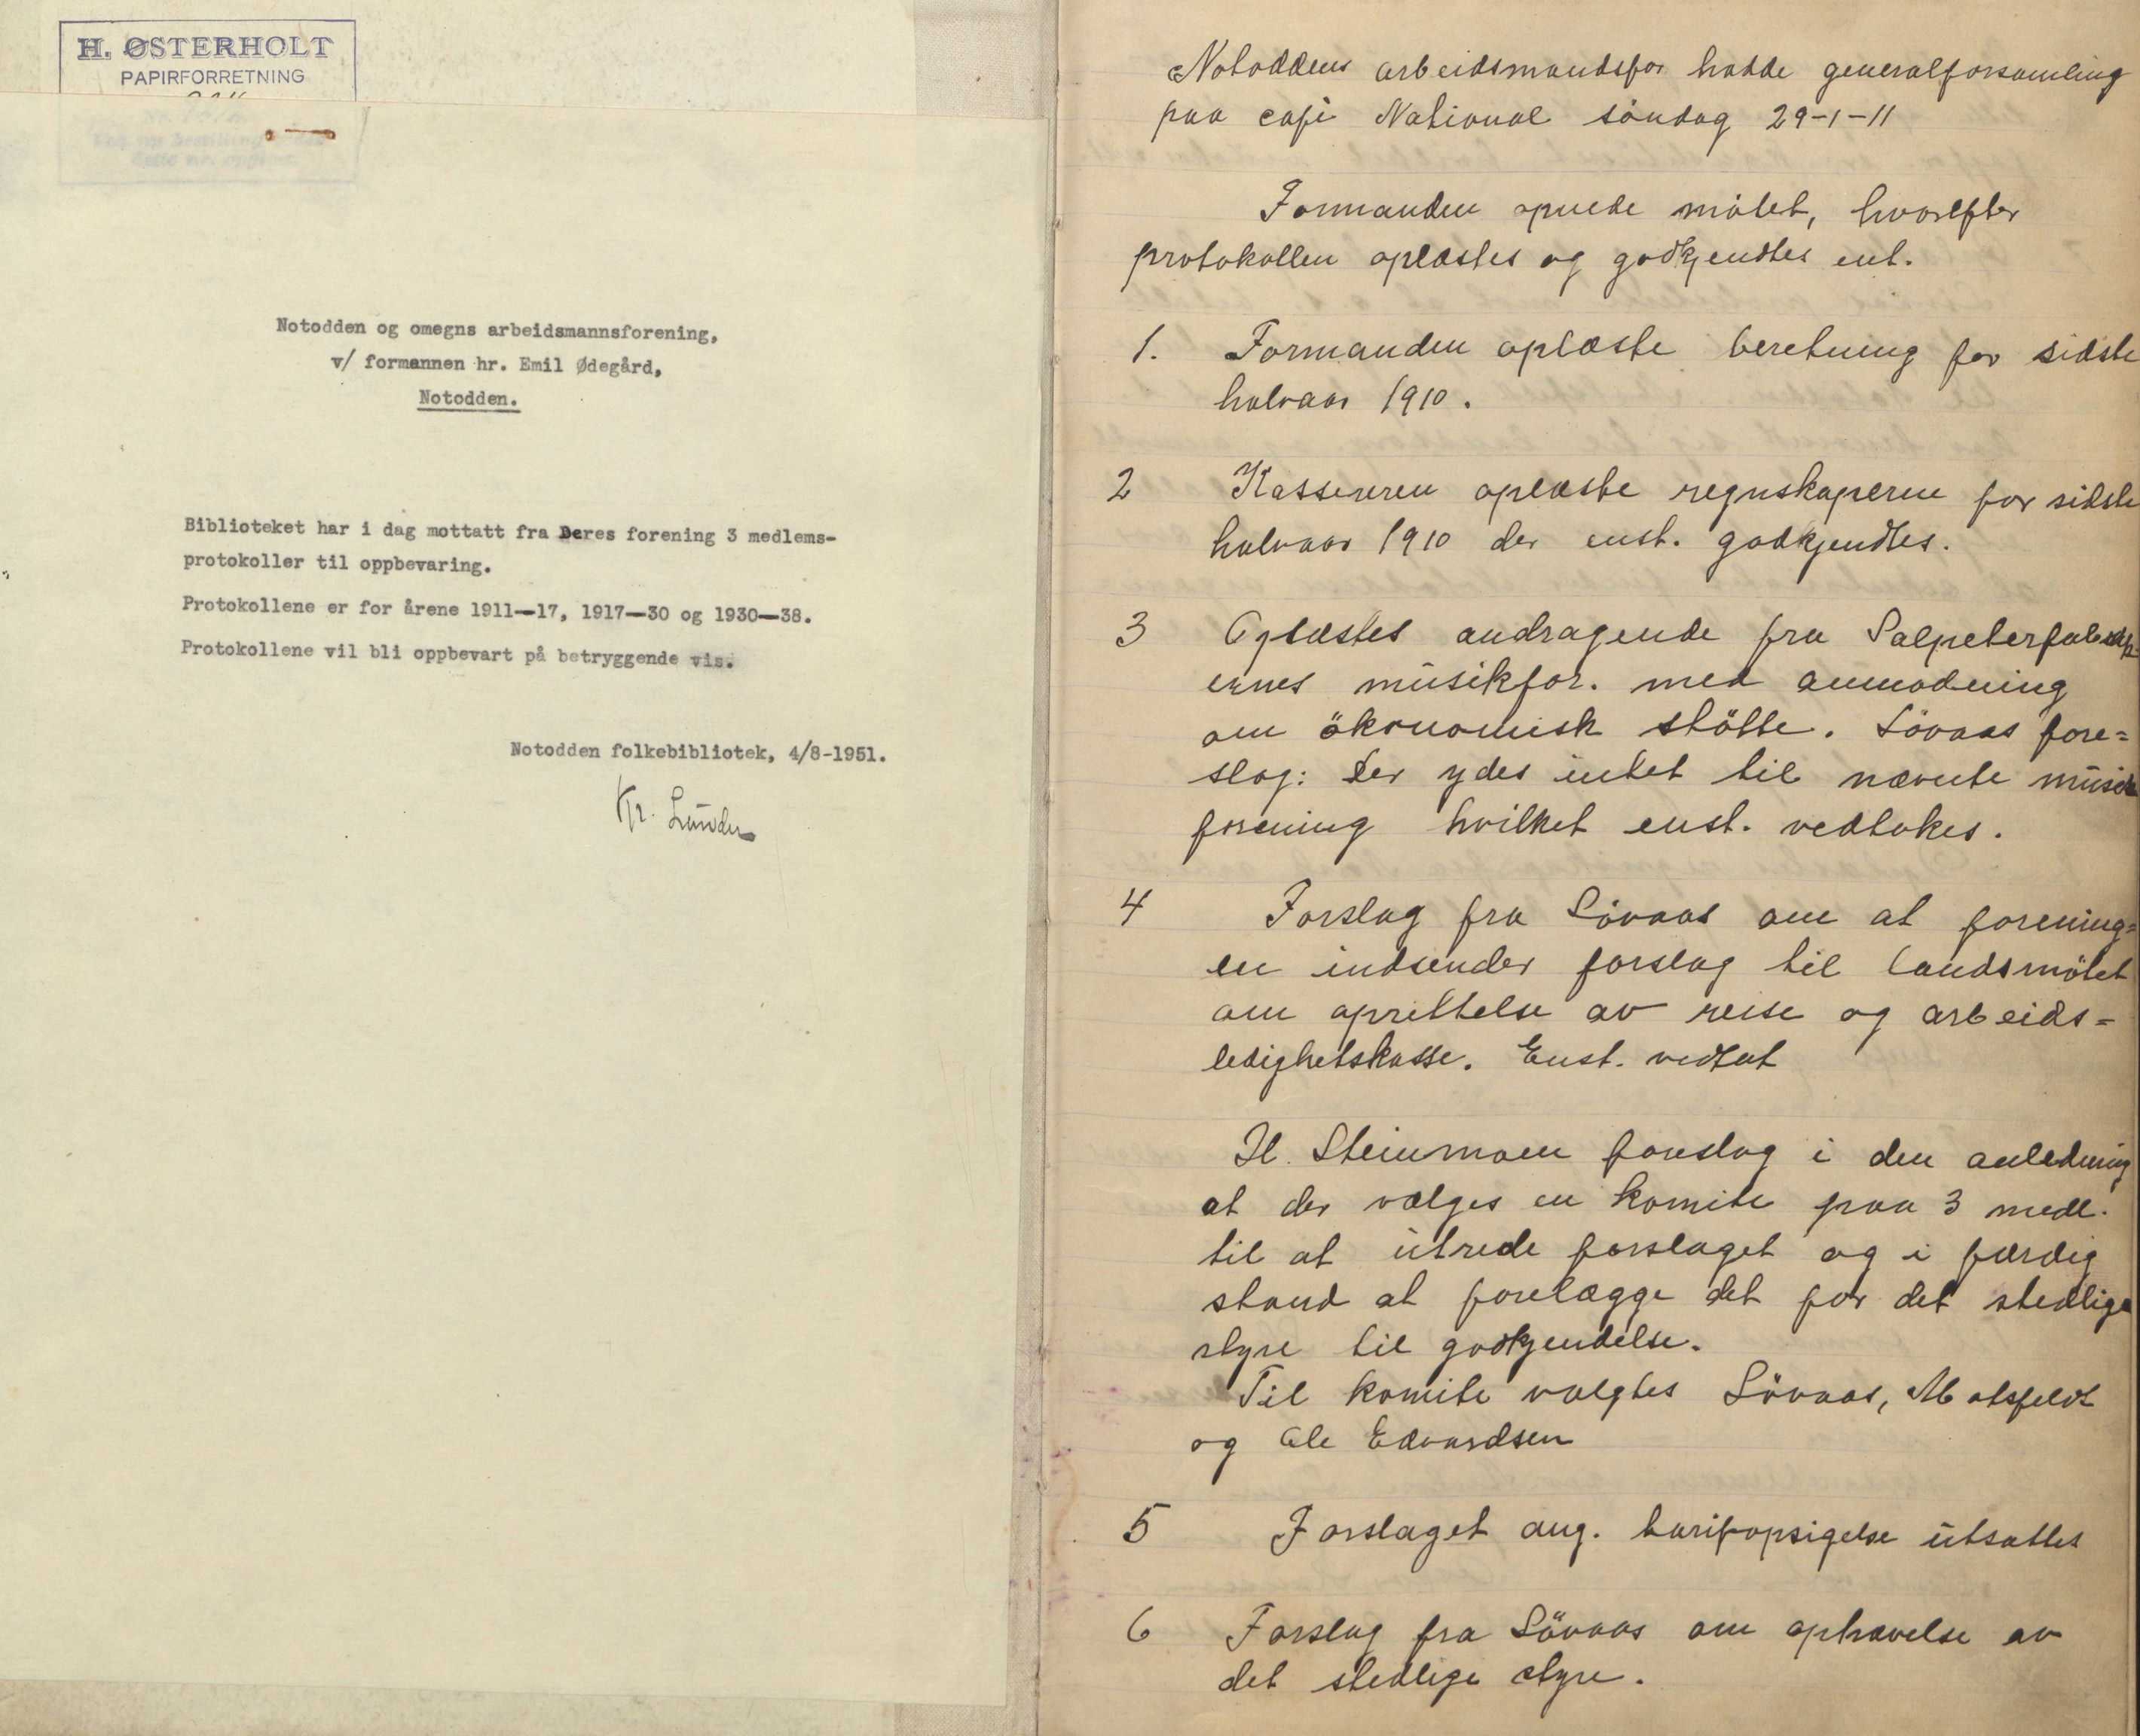 H. ØSTERHOLT
PAPIRFORRETNING
Notodden og omegns arbeidsmannsforening,
v/ formannen hr. Emil Ødegård,
Notodden.
Biblioteket har i dag mottatt fra Deres forening 3 medlems-
protokoller til oppbevaring.
Protokollene er for årene 1911—17, 1917—30 og 1930—38.
Protokollene vil bli oppbevart på betryggende vis.
Notodden folkebibliotek, 4/8-1951.
Kr. Lunder
Notoddens arbeidsmandsfor hadde generalforsamling
paa cafè National söndag 29-1-11
Formanden opnede mötet, hvorefter
protokollen oplæstes og godkjendtes ent.
1. Formanden oplæste beretning for sidste
halvaar 1910.
2 Kassereren oplæste regnskaperne for sidste
halvaar 1910 der enst. godkjendtes.
3 Oplæstes andragende fra
ernes musikfor. med anmodning
om ökonomisk stötte. Lövaas fore=
slog: Der ydes intet til nævnte musik
forening hvilket enst. vedtokes.
4 Forslag fra Lövaas om at forening=
en indsender forslag til landsmötet
om oprettelse av reise og arbeids=
ledighetskasse. Enst. vedtat
H. Steinmoen foreslog i den anledning
at der vælges en komite paa 3 medl.
til at utrede forslaget og i færdig
stand at forelægge det for det stedlige
styre til godkjendelse.
Til komite valgtes Lövaas, Motsfeldt
og Ole Edvardsen
5 Forslaget ang. tarifopsigelse utsattes
6 Forslag fra Lövaas om ophævelse av
det stedlige styre.